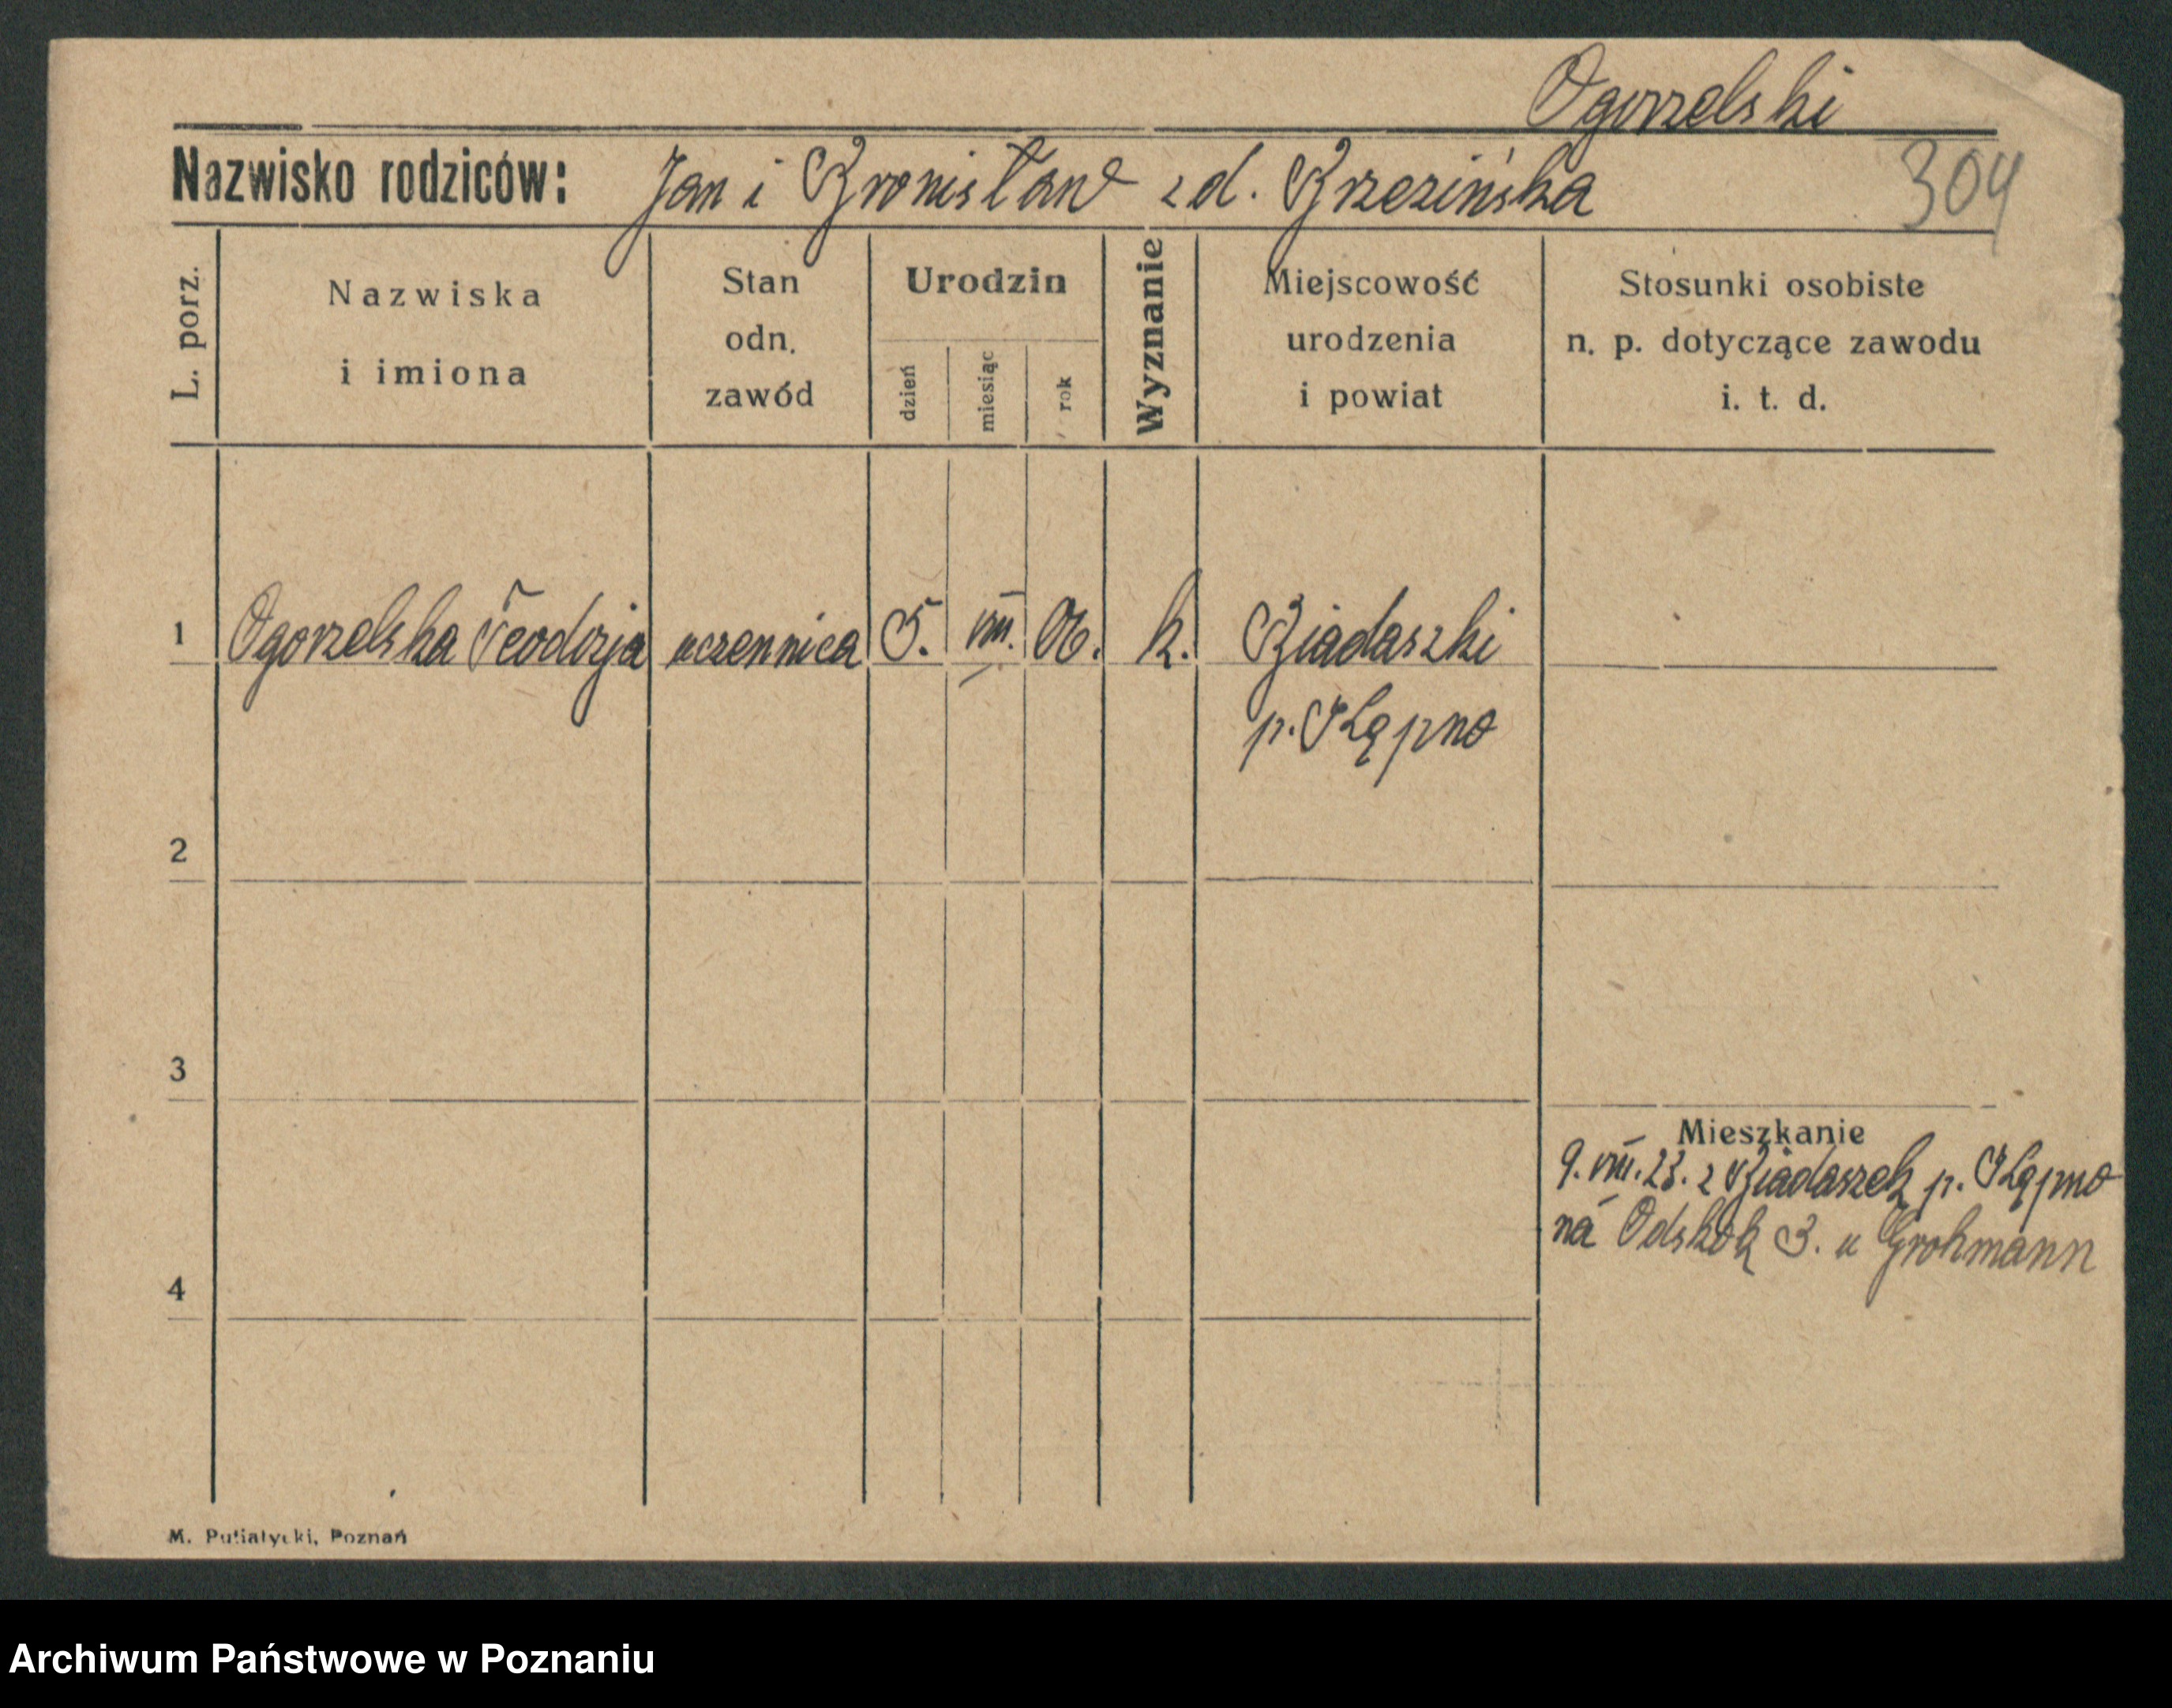 Ogorzelski
Nazwisko rodziców: Jan i Bronisława z d. Brzezińska
304
L. porz.
Nazwiska
i imiona
Stan
odn.
zawód
Urodzin
dzień
miesiąc
rok
Wyznanie
Miejscowość
urodzenia
i powiat
Stosunki osobiste
n. p. dotyczące zawodu
i. t. d.
1 Ogorzelska Teodozja uczennica 5. VIII. 06. k. Biadaszki
p. Kępno
2
3
Mieszkanie
9. VIII. 23. z Biadaszek p. Kępno
na Odskok 3. u Grohmann
4
M. Putiatycki, Poznań
Archiwum Państwowe w Poznaniu